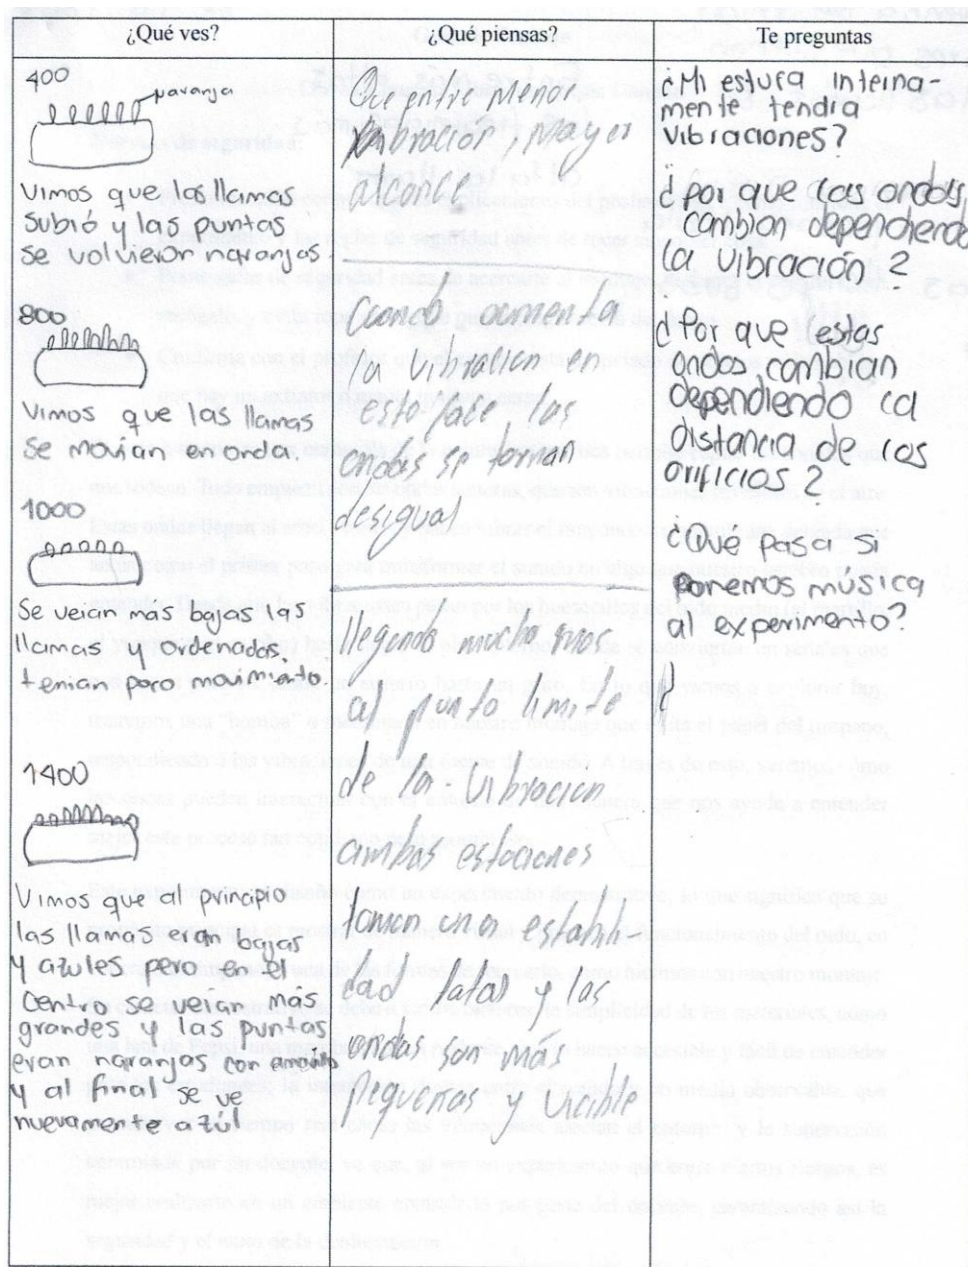 ¿Qué ves?
400
naranja
Vimos que las llamas
Subió y las puntas
Se volvieron naranjas.
800
Vimos que las llamas
Se movian en onda.
1000
Se veian mas bajas las
llamas y ordenadas,
tenian poro movimiento.
1400
Vimos que al principio
las llamas eran bajas
Y azules pero en el
Centro se veian más
grandes y las puntas
eran naranjas con amarillo
Y al final se ve
nuevamente azúl
¿Qué piensas?
Que entre menor
vibración, mayor
alcance.
Cuando aumenta
la vibración en
esto hace las
ondas se forman
desigual
llegando mucho mas
al punto limite
de la vibración
ambas estaciones
toman una estabili
dad y las
ondas son más
Pequeñas y visible
Te preguntas
¿Mi estura interna-
mente tendria
vibraciones?
¿por que las ondas
cambian dependiendo
la vibración?
¿Por que estas
ondas cambian
dependiendo la
distancia de los
orificios?
¿Qué pasa si
ponemos música
al experimento?